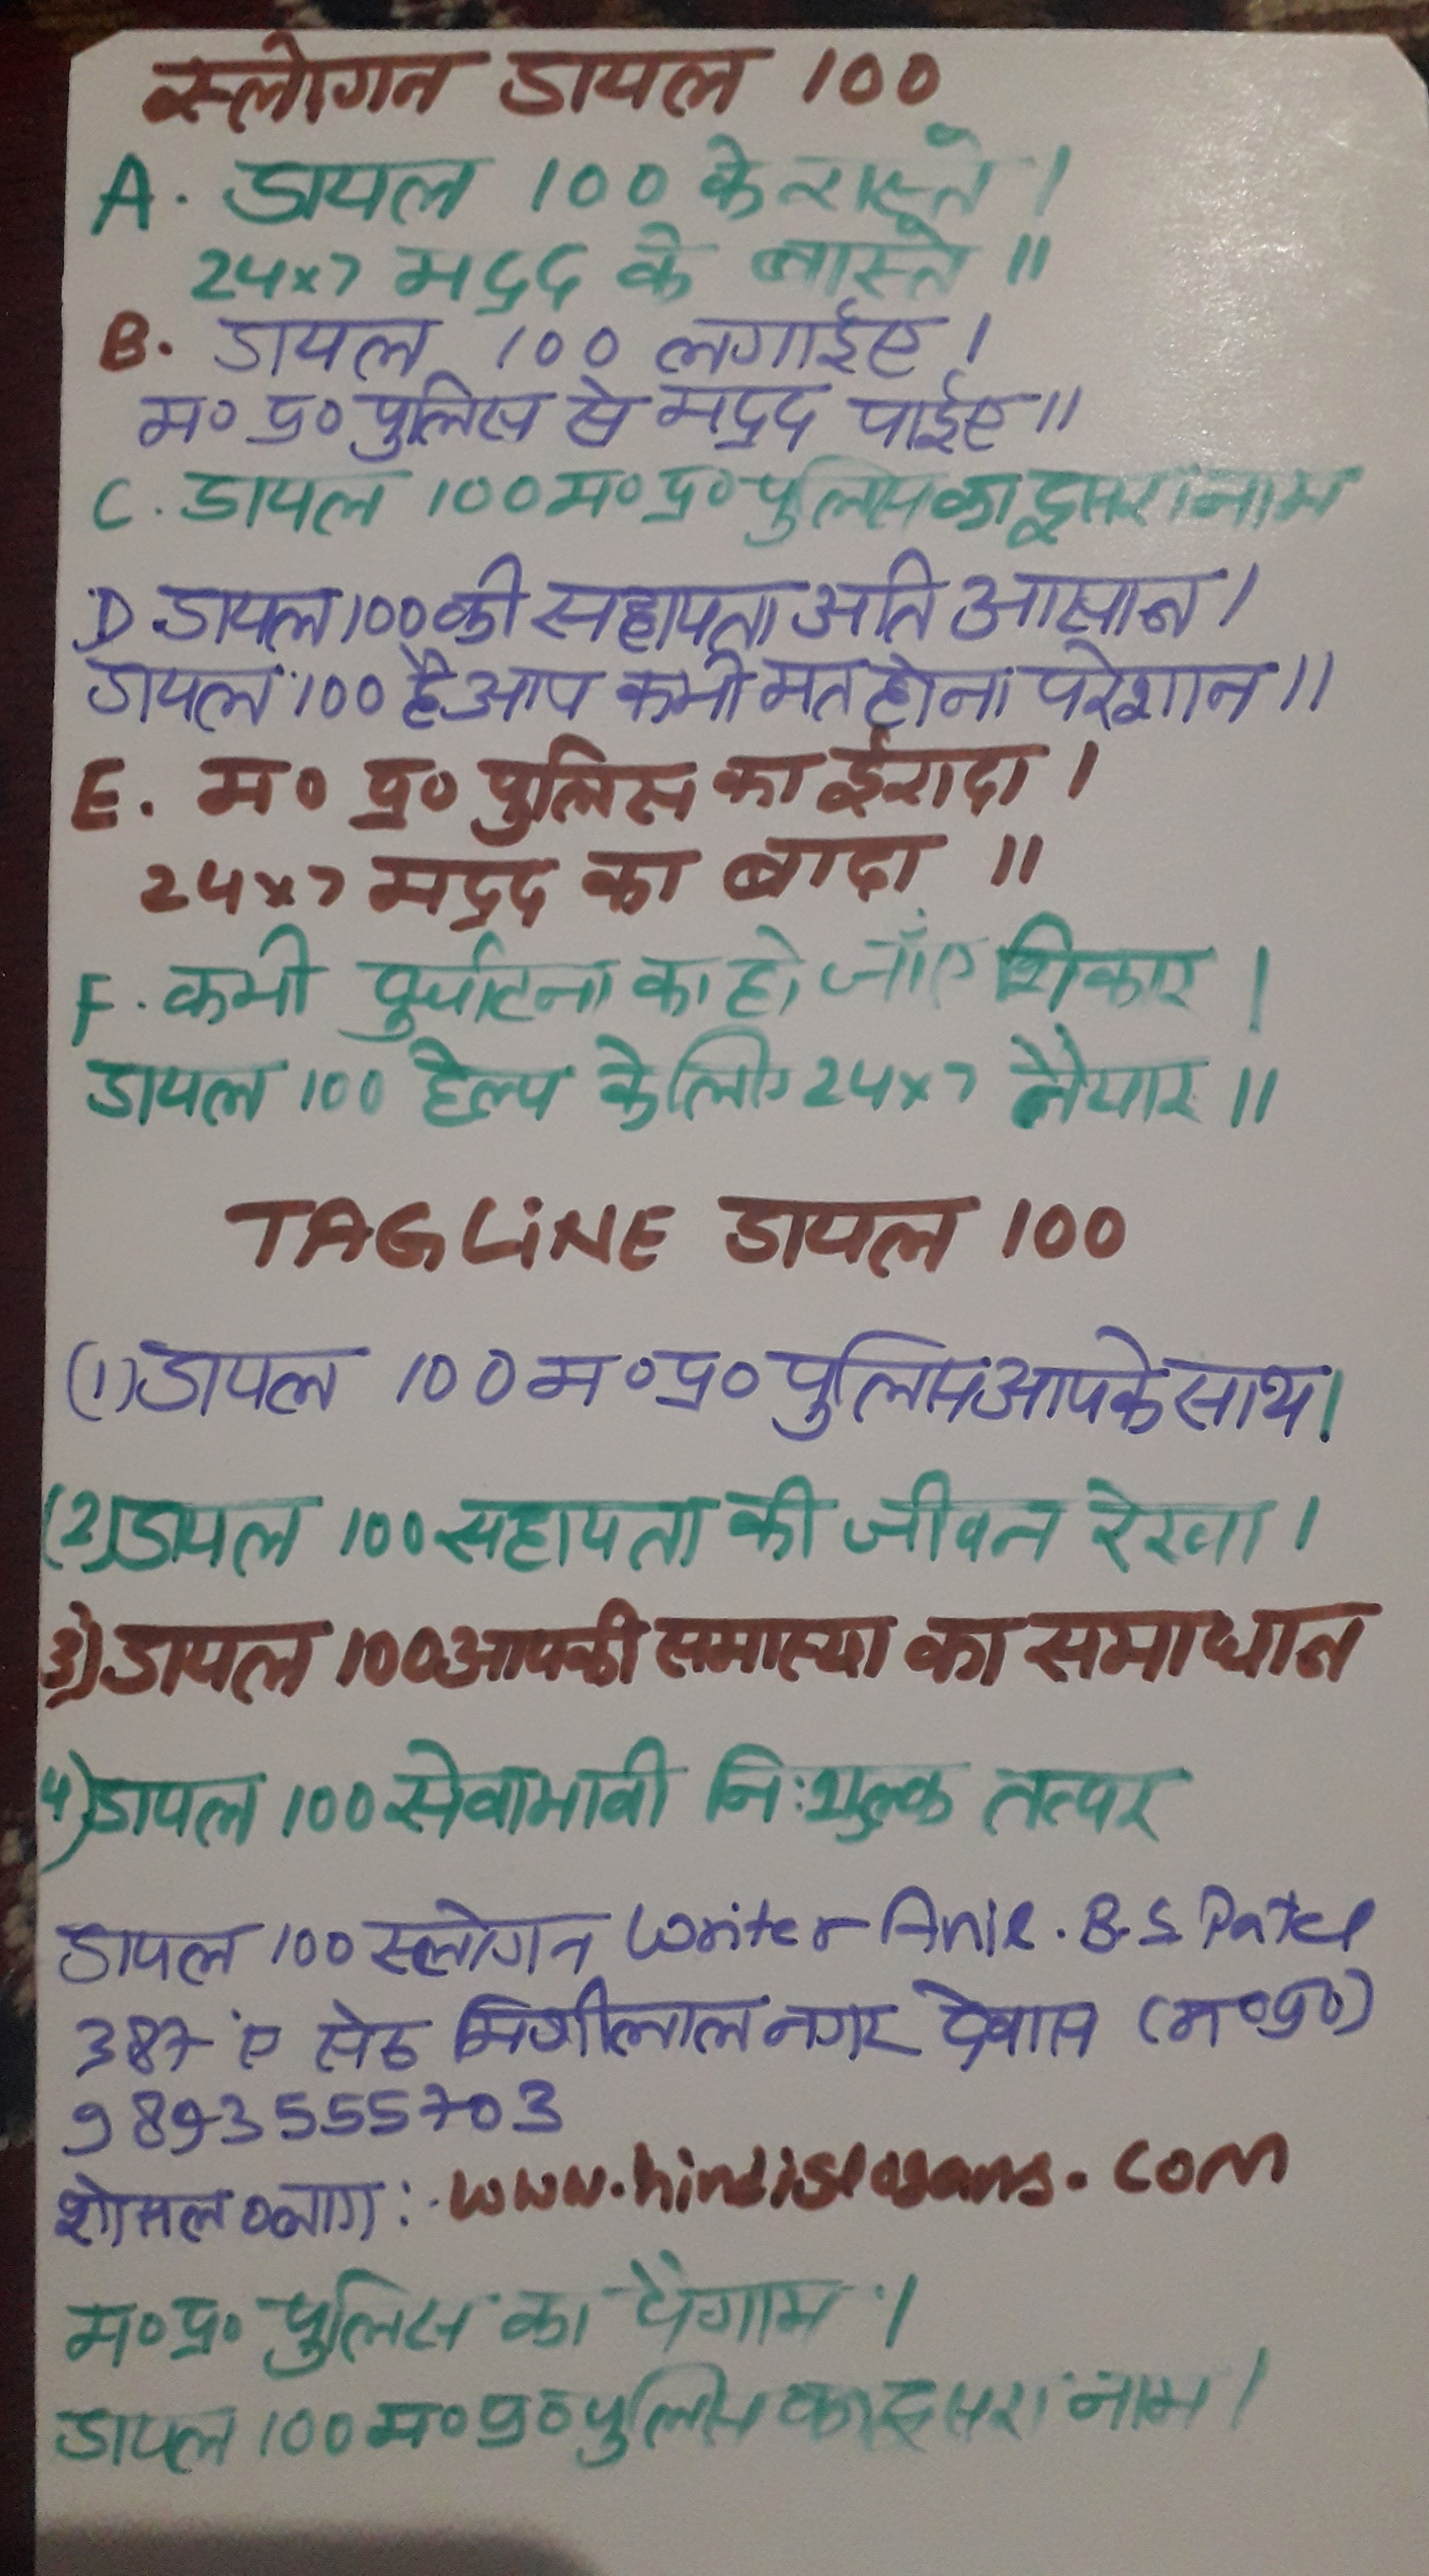 स्लोगन डायल 100
A. डायल 100 के रास्ते।
24x7 मद्रद के बास्ते॥
B. डायल 100 लगाईए।
म० प्र० पुलिस से मद्रद पाईए॥
C. डायल 100 म० प्र० पुलिस का दूसरा नाम
D डायल 100 की सहायता अति आसान।
डायल 100 है आप कभी मत होना परेशान॥
E. म० प्र० पुलिस का ईरादा।
24x7 मद्रद का बादा॥
F. कभी दुर्घटना का हो जाँए शिकार।
डायल 100 हेल्प के लिए 24x7 तैयार॥
TAGLiNE डायल 100
(1) डायल 100 म० प्र० पुलिस आपके साथ।
(2) डायल 100 सहायता की जीवन रेखा।
3) डायल 100 आपकी समास्या का समाधान
4) डायल 100 सेवाभावी नि:शुल्क तत्पर
डायल 100 स्लोगन Writer Anil. B.S Patel
387 ए सेठ मिश्रीलाल नगर देवास (म०प्र०)
9893555703
शोसल ब्लाग:- www.hindislogans.com
म० प्र० पुलिस का पैगाम।
डायल 100 म० प्र० पुलिस का दूसरा नाम।